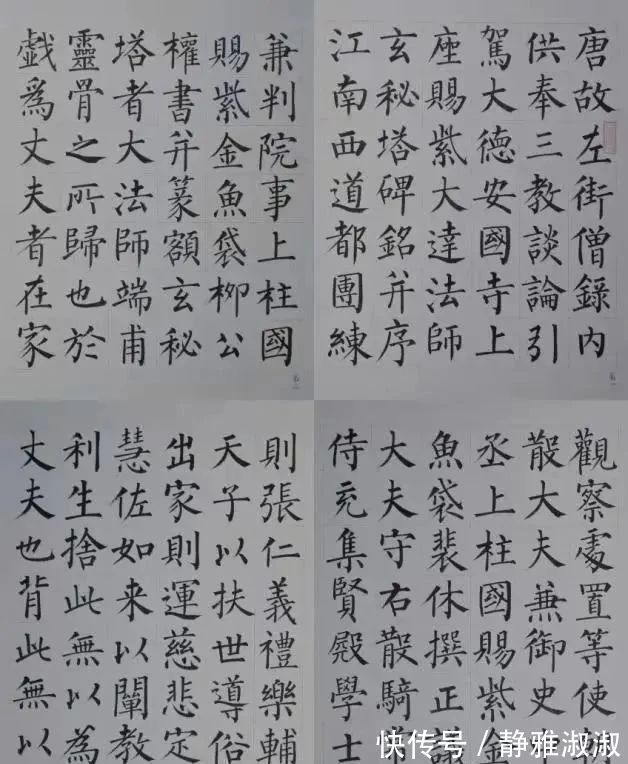 唐故左街僧錄內
供奉三教談論引
駕大德安國寺上
座賜紫大達法師
玄秘塔碑銘并序
江南西道都團練
觀察處置等使
散大夫兼御史
丞上柱國賜紫金
魚袋裴休撰正議
大夫守右散騎
侍充集賢殿學士
兼判院事上柱國
賜紫金魚袋柳公
權書并篆額玄秘
塔者大法師端甫
靈骨之所歸也於
戲爲丈夫者在家
則張仁義禮樂輔
天子以扶世導俗
出家則運慈悲定
慧佐如来以闡教
利生捨此無以為
丈夫也背此無以
快传号／静雅淑淑